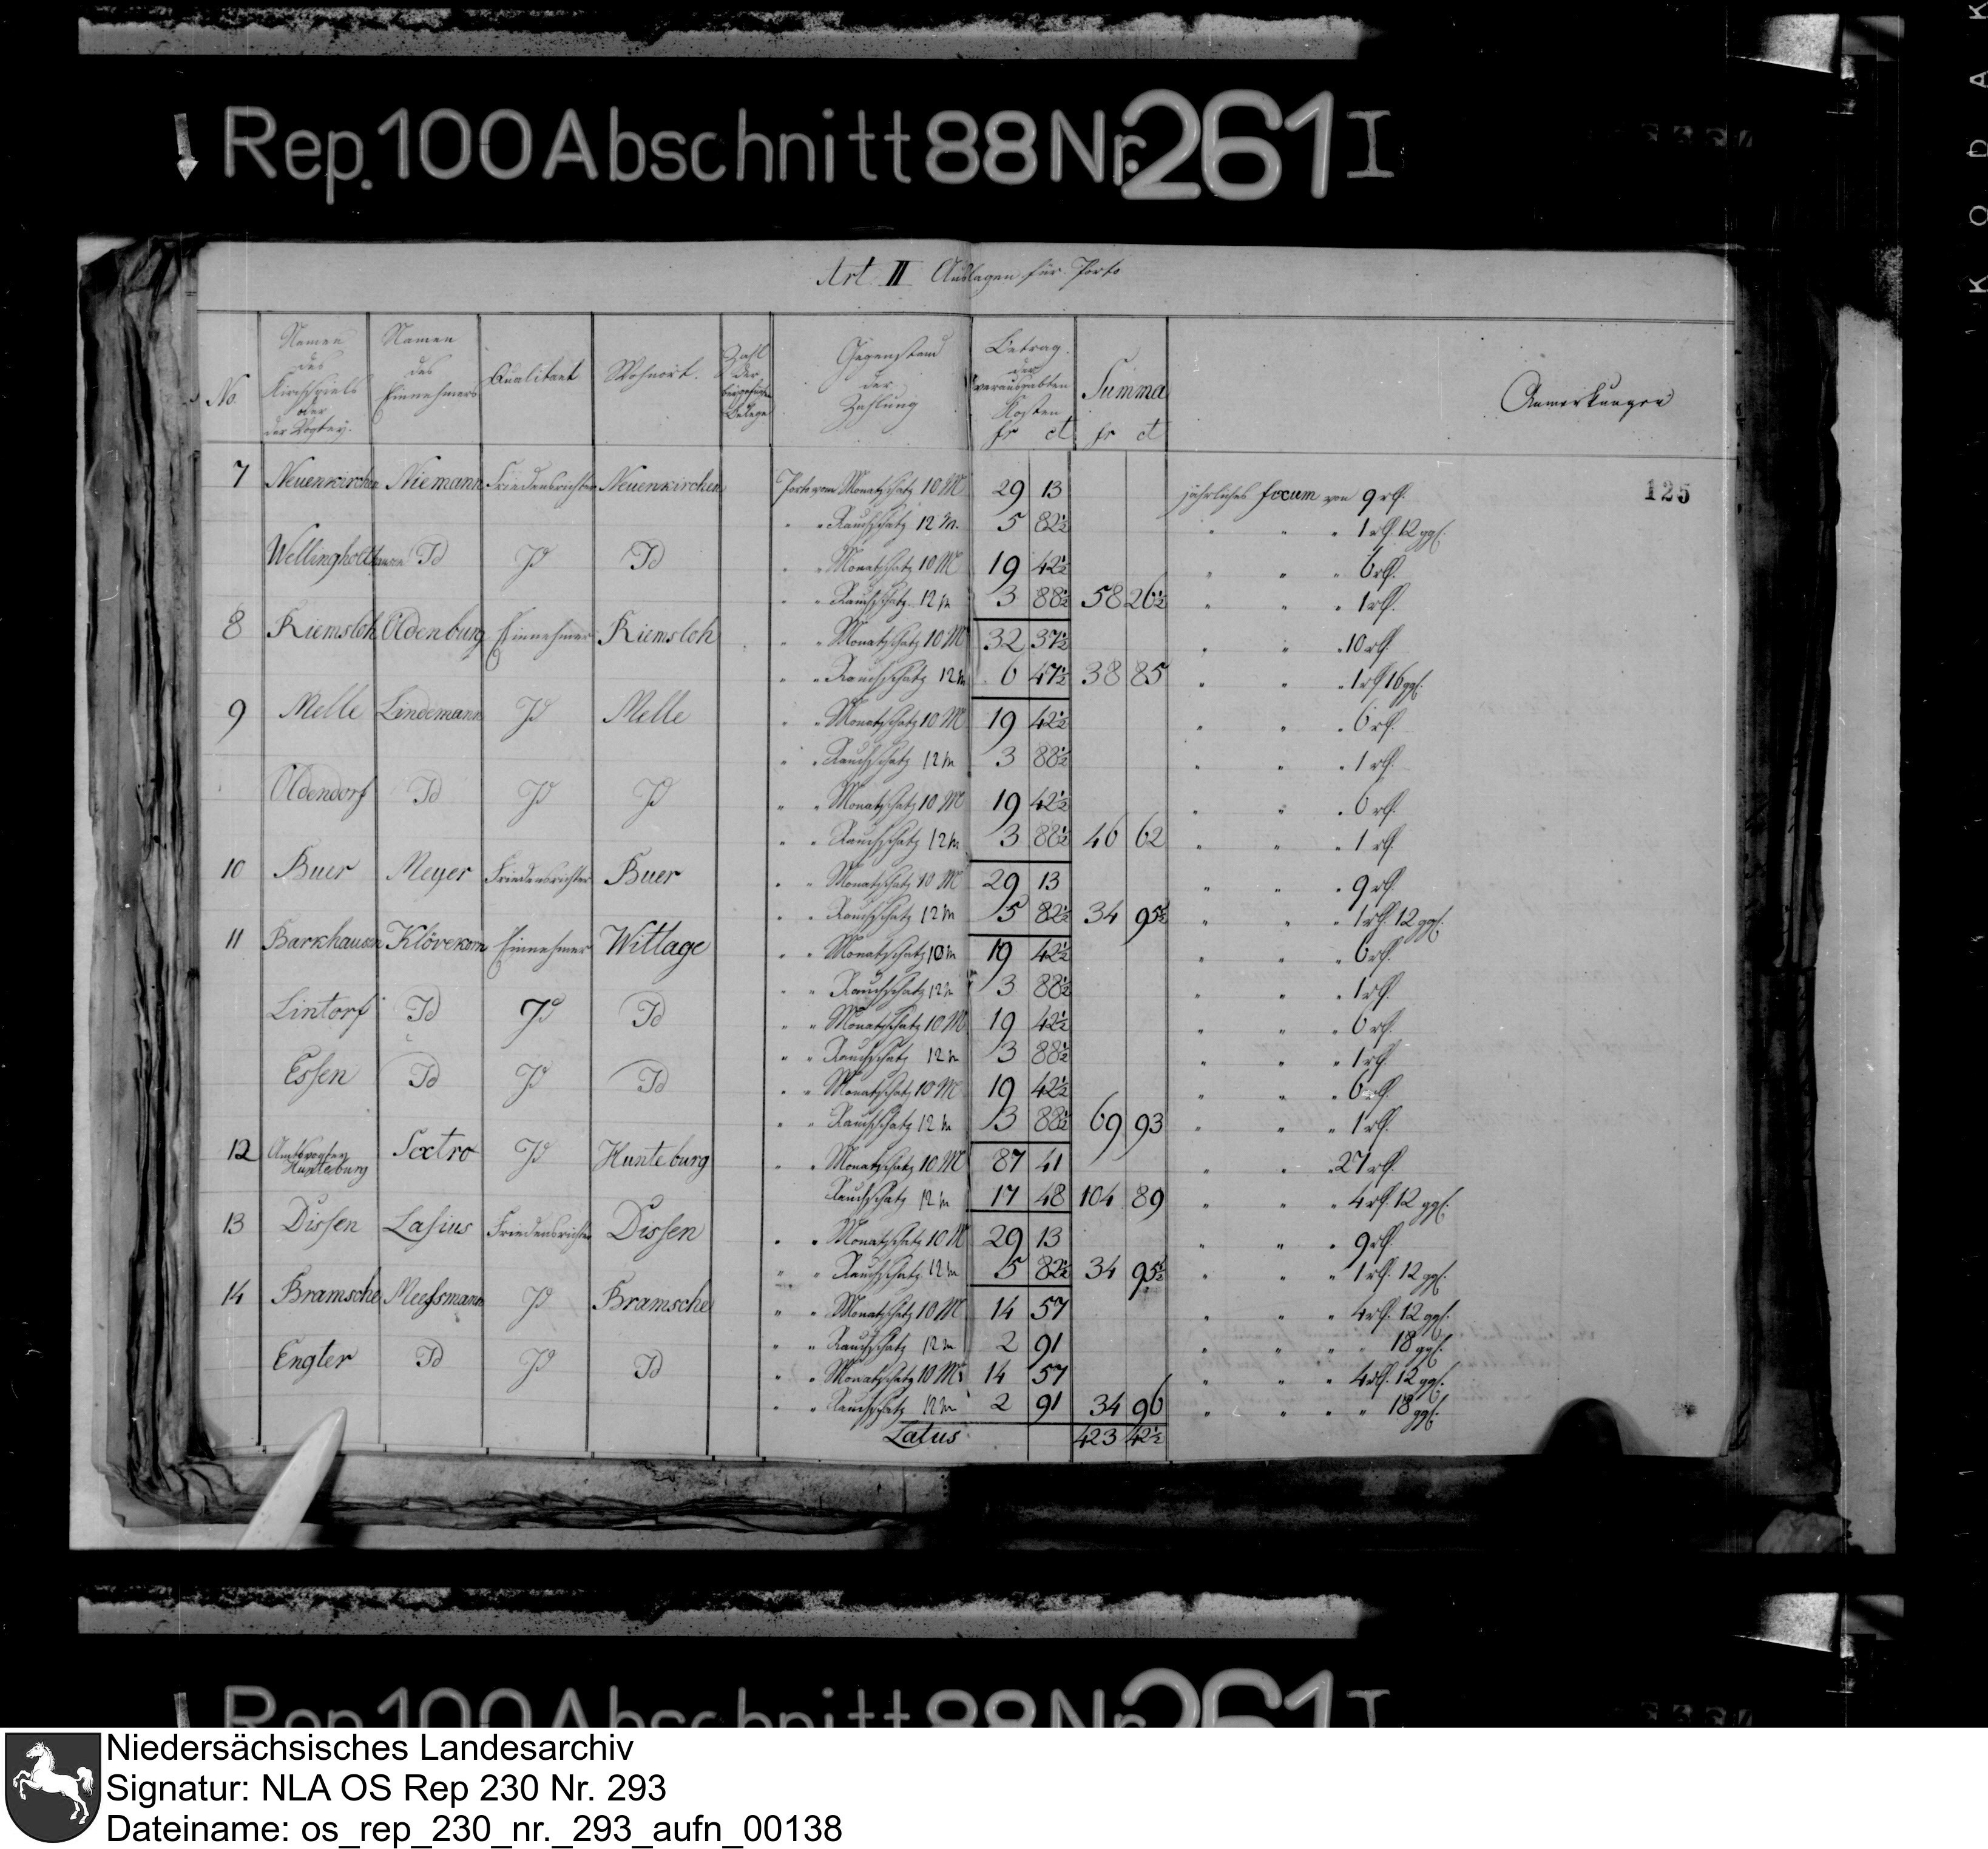 KODAK
Rep. 100 Abschnitt 88 Nr. 261 I
Art. II Auslagen für Porto
No. | Namen des Kirchspiels oder der Vogtey. | Namen des Einnehmers | Qualitaet | Wohnort. | Zahl der beigefügten Belege | Gegenstand der Zahlung | Betrag der verausgabten Kosten fr ct | Summa fr ct | Anmerkungen
125
7 Neuenkirchen Niemann Friedensrichter Neuenkirchen Porto vom Monatschatz 10 M 29 13 jährliches fixum von 9 rℓ.
" " Rauchschatz 12 M. 5 82½ " " " 1 rℓ. 12 ggℓ.
Wellingholthausen Id Id Id " " Monatschatz 10 M 19 42½ " " " 6 rℓ.
" " Rauchschatz 12 m 3 88½ 58 26½ " " " 1 rℓ.
8 Riemsloh Oldenburg Einnehmer Riemsloh " " Monatschatz 10 M 32 37½ " " " 10 rℓ.
" " Rauchschatz 12 m 6 47½ 38 85 " " " 1 rℓ 16 ggℓ.
9 Melle Lindemann Id Melle " " Monatschatz 10 M 19 42½ " " " 6 rℓ.
" " Rauchschatz 12 m 3 88½ " " " 1 rℓ.
Oldendorf Id Id Id " " Monatschatz 10 M 19 42½ " " " 6 rℓ.
" " Rauchschatz 12 m 3 88½ 46 62 " " " 1 rℓ
10 Buer Meyer Friedensrichter Buer " " Monatschatz 10 M 29 13 " " " 9 rℓ.
" " Rauchschatz 12 m 5 82½ 34 95½ " " " 1 rℓ. 12 ggℓ.
11 Barkhausen Klövekorn Einnehmer Wittlage " " Monatschatz 10 m 19 42½ " " " 6 rℓ.
" " Rauchschatz 12 m 3 88½ " " " 1 rℓ.
Lintorf Id Id Id " " Monatschatz 10 M 19 42½ " " " 6 rℓ.
" " Rauchschatz 12 m 3 88½ " " " 1 rℓ
Essen Id Id Id " " Monatschatz 10 M 19 42½ " " " 6 rℓ.
" " Rauchschatz 12 m 3 88½ 69 93 " " " 1 rℓ.
12 Amtsvogtey Hunteburg Sextro Id Hunteburg " " Monatschatz 10 M 87 41 " " " 27 rℓ.
Rauchschatz 12 m 17 48 104 89 " " " 4 rℓ. 12 ggℓ.
13 Dissen Lasius Friedensrichter Dissen " " Monatschatz 10 M 29 13 " " " 9 rℓ
" " Rauchschatz 12 m 5 82½ 34 95½ " " " 1 rℓ. 12 ggℓ.
14 Bramsche Meessmann Id Bramsche " " Monatschatz 10 M 14 57 " " " 4 rℓ. 12 ggℓ.
" " Rauchschatz 12 m 2 91 " " " " 18 ggℓ.
Engter Id Id Id " " Monatschatz 10 M 14 57 " " " 4 rℓ. 12 ggℓ.
" " Rauchschatz 12 m 2 91 34 96 " " " " 18 ggℓ.
Latus 423 42½
Rep. 100 Abschnitt 88 Nr. 261 I
Niedersächsisches Landesarchiv
Signatur: NLA OS Rep 230 Nr. 293
Dateiname: os_rep_230_nr._293_aufn_00138